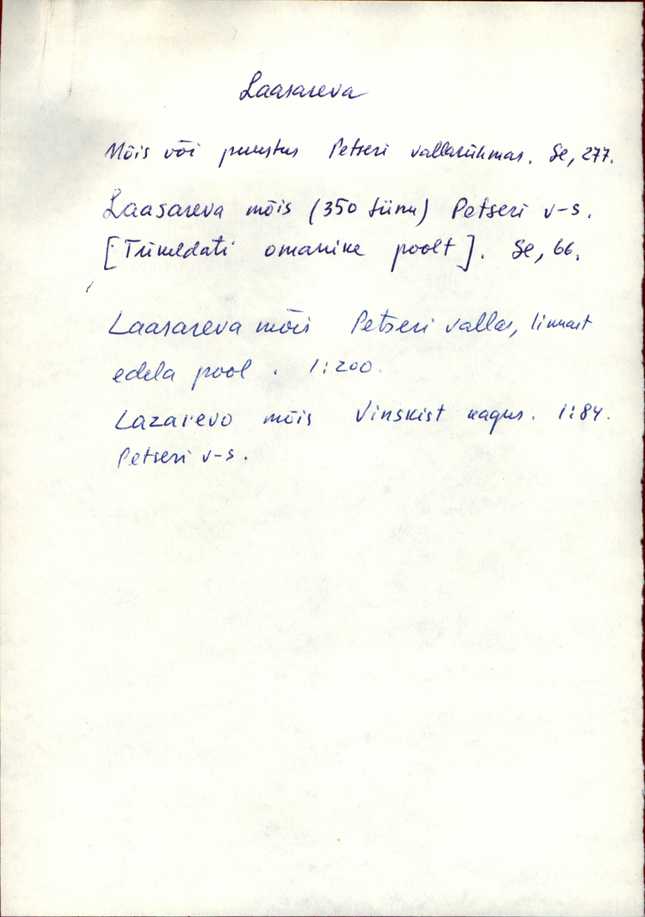 Laasareva
Mõis või puustus Petseri vallarühmas. Se, 277.
Laasareva mõis (350 tiinu) Petseri v-s.
[Tükeldati omanike poolt]. Se, 66.
Laasareva mõis Petseri vallas, linnast
edela pool. 1:200.
Lazarevo mõis Vinskist kagus. 1:84.
Petseri v-s.